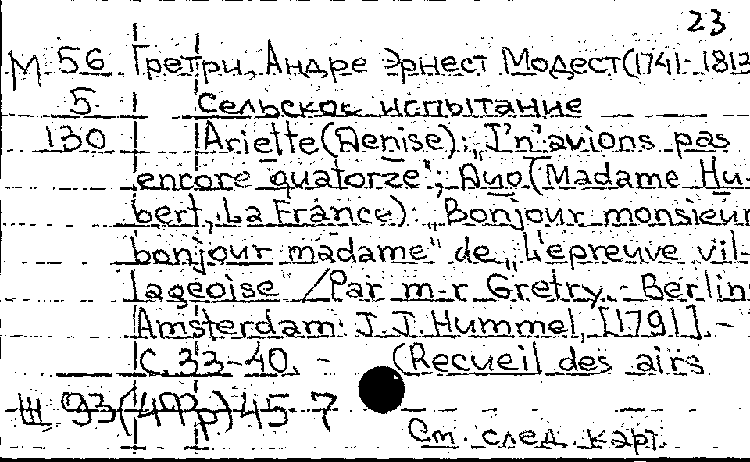 23
М 56 Гретри, Андре Эрнест Модест (1741-1813
5 Сельское испытание
130 Ariette (Denise): „J'n'avions pas
encore quatorze"; Duo (Madame Hu-
bert, La France): „Bonjour monsieur
bonjour madame" de „L'epreuve vil-
lageoise" / Par m-r Gretry. - Berlin;
Amsterdam: J. J. Hummel, [1791]. -
С. 33-40. - (Recueil des airs
Ш 93(4Фр)45-7
См. след. карт.